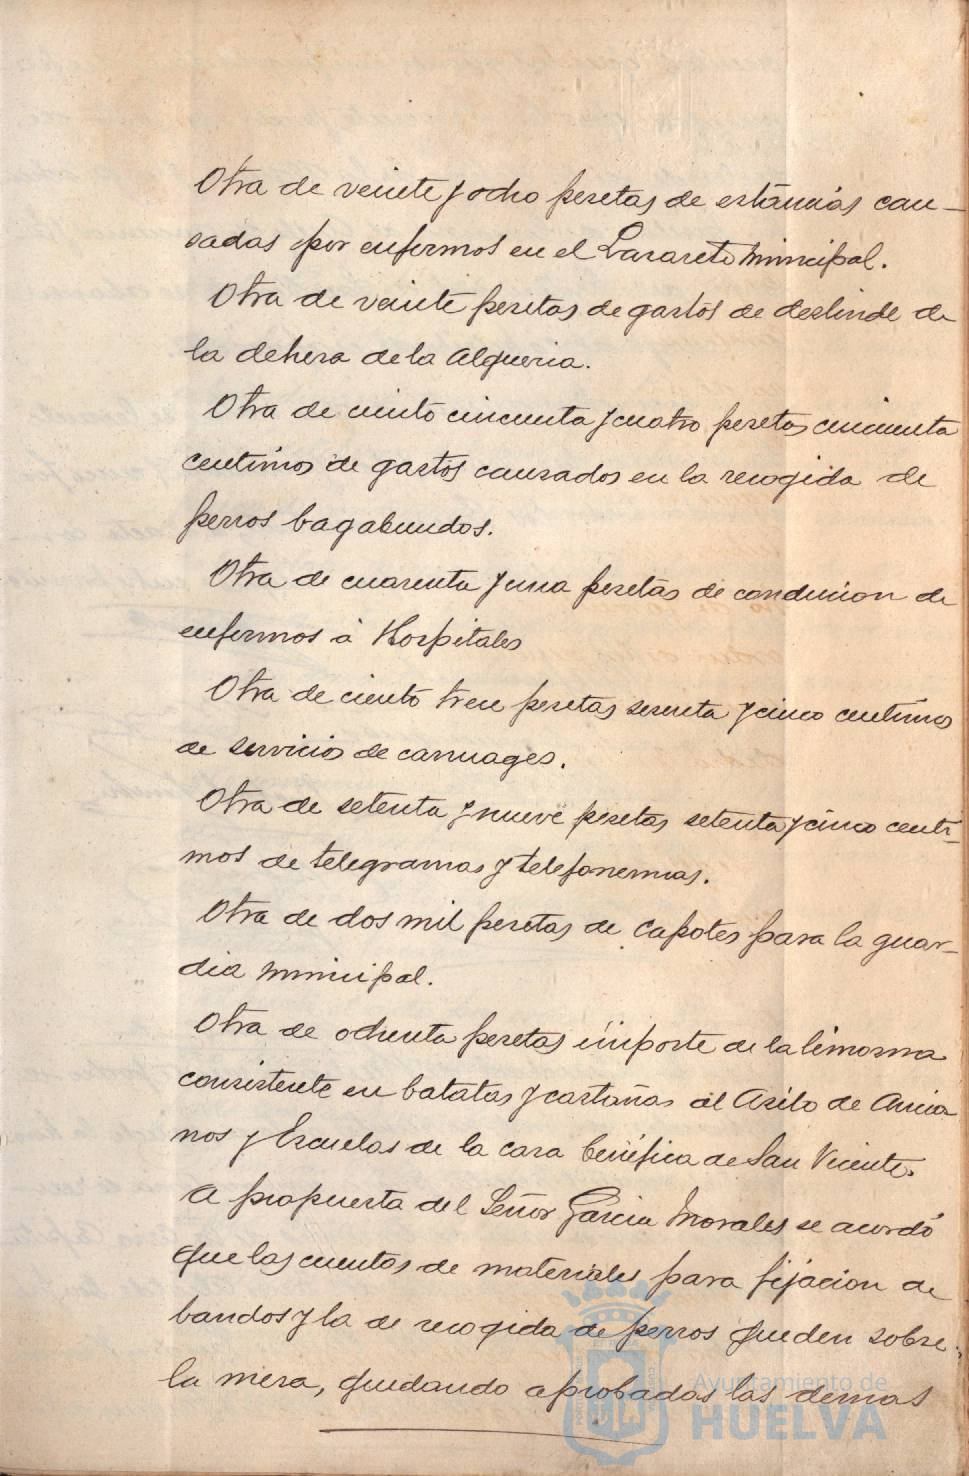 Otra de veinte y ocho pesetas de estancias cau-
sadas por enfermos en el Lazareto Municipal.
Otra de veinte pesetas de gastos de deslinde de
la dehesa de la Alqueria.
Otra de ciento cincuenta y cuatro pesetas cincuenta
centimos de gastos causados en la recogida de
perros bagabundos.
Otra de cuarenta y una pesetas de conducion de
enfermos á Hospitales
Otra de ciento trece pesetas sesenta y cinco centimos
de servicios de carruages.
Otra de setenta y nueve pesetas setenta y cinco centi-
mos de telegramas y telefonemas.
Otra de dos mil pesetas de capotes para la guar-
dia municipal.
Otra de ochenta pesetas importe de la limosna
consistente en batatas y castañas al Asilo de Ancia
nos y Escuelas de la casa benéfica de San Vicente.
A propuesta del Señor Garcia Morales se acordó
que las cuentas de materiales para fijacion de
bandos y la de recogida de perros queden sobre
la mesa, quedando aprobadas las demas
Ayuntamiento de
HUELVA